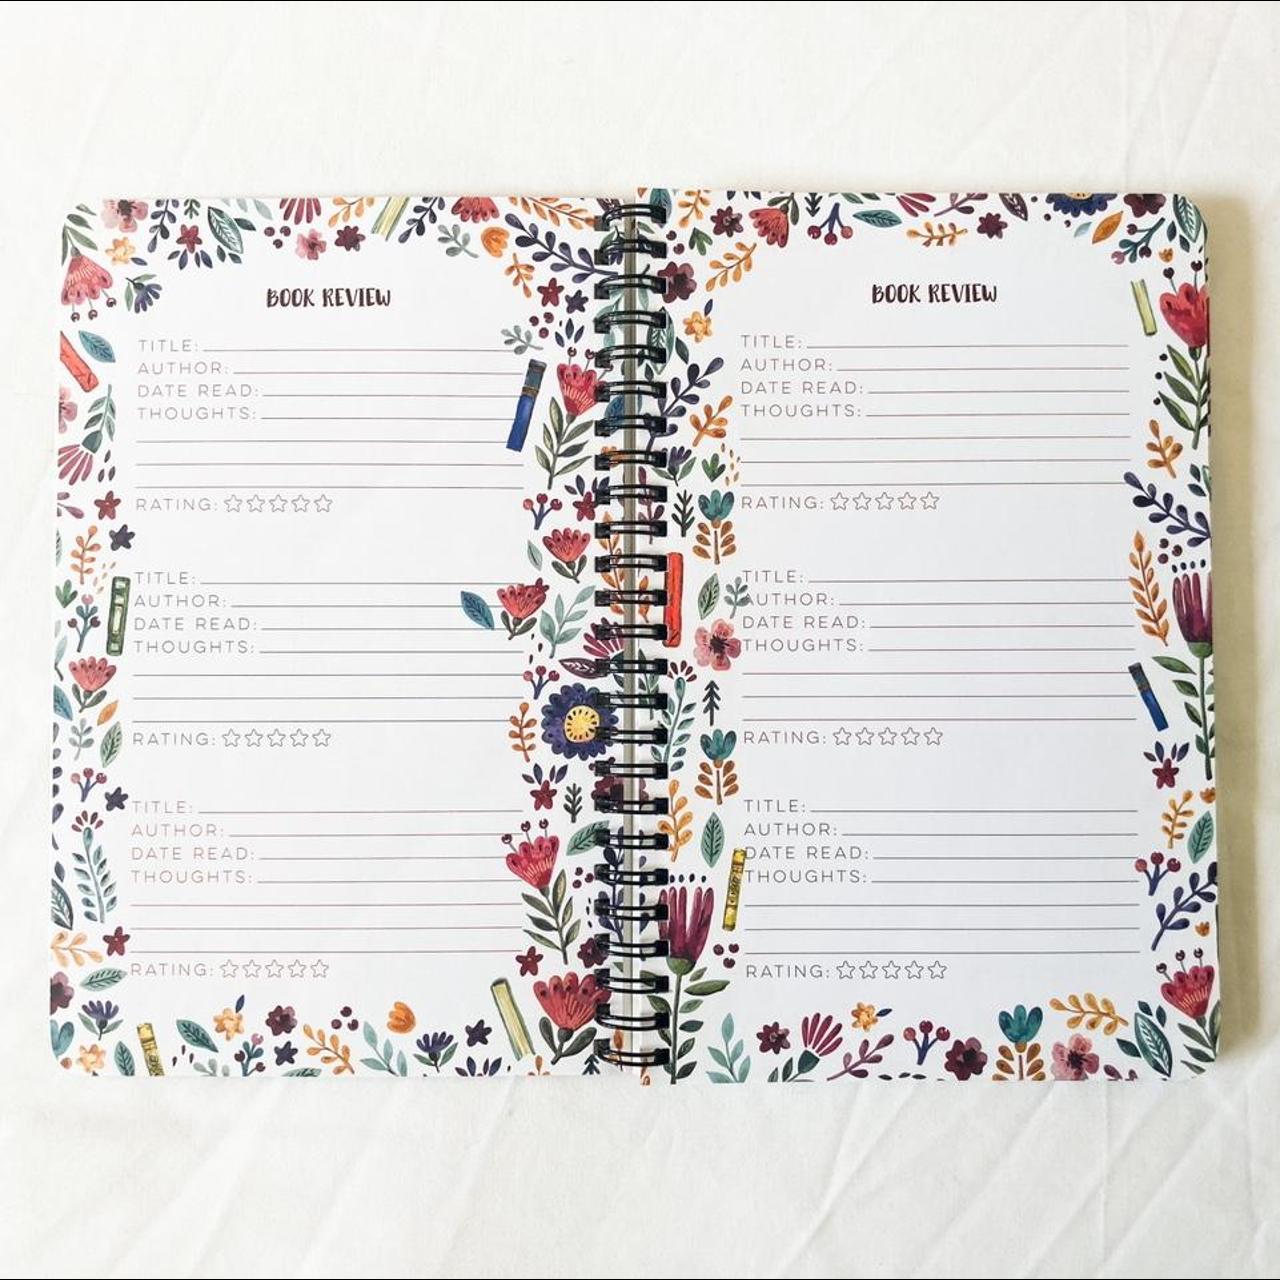 BOOK REVIEW
TITLE:
AUTHOR:
DATE READ:
THOUGHTS:
RATING:
TITLE:
AUTHOR:
DATE READ:
THOUGHTS:
RATING:
TITLE:
AUTHOR:
DATE READ:
THOUGHTS:
RATING:
BOOK REVIEW
TITLE:
AUTHOR:
DATE READ:
THOUGHTS:
RATING:
TITLE:
AUTHOR:
DATE READ:
THOUGHTS:
RATING:
TITLE:
AUTHOR:
DATE READ:
THOUGHTS:
RATING: